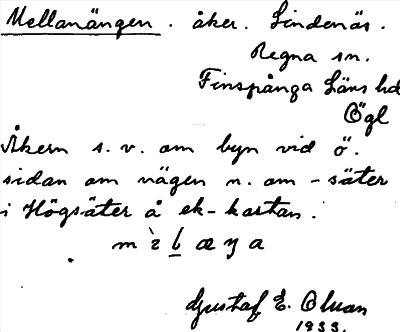 Mellanängen. åker. Lindenäs.
Regna sn.
Finspånga Läns hd
Ögl
Åkern s. v. om byn vid ö.
sidan om vägen n. om -säter
i Högsäter å ek-kartan.
Gustaf E. Olson
1933.